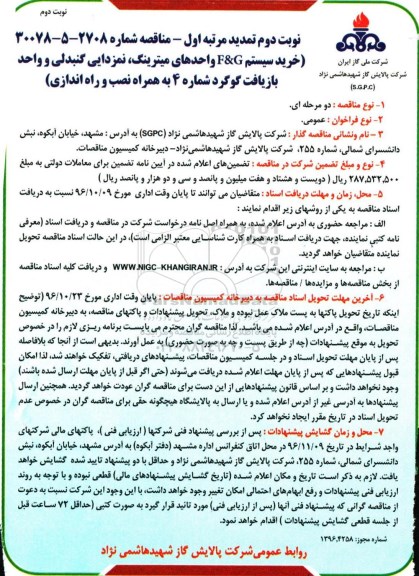 نوبت دوم
شرکت ملی گاز ایران
شرکت پالایش گاز شهیدهاشمی نژاد
(S.G.P.C)
نوبت دوم تمدید مرتبه اول - مناقصه شماره ۲۷۰۸-۵-۳۰۰۷۸
(خرید سیستم F&G واحدهای میترینگ، نمزدایی گنبدلی و واحد
بازیافت گوگرد شماره ۴ به همراه نصب و راه اندازی)
۱- نوع مناقصه : دو مرحله ای.
۲- نوع فراخوان : عمومی.
۳- نام ونشانی مناقصه گذار : شرکت پالایش گاز شهیدهاشمی نژاد (SGPC) به آدرس : مشهد، خیابان آبکوه، نبش
دانشسرای شمالی، شماره ۲۵۵، شرکت پالایش گاز شهیدهاشمی نژاد- دبیرخانه کمیسیون مناقصات.
۴- نوع و مبلغ تضمین شرکت در مناقصه : تضمین‌های اعلام شده در آیین نامه تضمین برای معاملات دولتی به مبلغ
۲۸۷,۵۳۲,۵۰۰ ریال ( دویست و هشتاد و هفت میلیون و پانصد و سی و دو هزار و پانصد ریال )
۵- محل، زمان و مهلت دریافت اسناد : متقاضیان می توانند تا پایان وقت اداری مورخ ۹۶/۱۰/۰۹ نسبت به دریافت
اسناد مناقصه به یکی از روشهای زیر اقدام نمایند :
الف : مراجعه حضوری به آدرس اعلام شده، به همراه اصل نامه درخواست شرکت در مناقصه و دریافت اسناد (معرفی
نامه کتبی نماینده، جهت دریافت اسناد به همراه کارت شناسایی معتبر الزامی است)، در این حالت اسناد مناقصه تحویل
نماینده متقاضیان خواهد گردید.
ب : مراجعه به سایت اینترنتی این شرکت به آدرس : WWW.NIGC-KHANGIRAN.IR و دریافت کلیه اسناد مناقصه
از بخش مناقصه ها و مزایده‌ها / مناقصه‌ها.
۶- آخرین مهلت تحویل اسناد مناقصه به دبیرخانه کمیسیون مناقصات : پایان وقت اداری مورخ ۹۶/۱۰/۲۳ (توضیح
اینکه تاریخ تحویل پاکتها به پست ملاک عمل نبوده و ملاک، تحویل پیشنهادات و پاکتهای مناقصه، به دبیرخانه کمیسیون
مناقصات، واقع در آدرس اعلام شده می باشد. لذا مناقصه گران محترم می بایست برنامه ریزی لازم را در خصوص
تحویل به موقع پیشنهادات (چه از طریق پست و چه به صورت حضوری) به عمل آورند. بدیهی است از آنجا که بلافاصله
پس از پایان مهلت تحویل اسناد و در جلسه کمیسیون مناقصات، پیشنهادهای دریافتی، تفکیک خواهند شد، لذا امکان
قبول پیشنهادهایی که پس از پایان مهلت اعلام شده دریافت می‌شوند (حتی اگر قبل از پایان مهلت ارسال شده باشند)
وجود نخواهد داشت و بر اساس قانون پیشنهادهایی از این دست برای مناقصه گران عودت خواهد گردید. همچنین ارسال
پیشنهادها به آدرسی غیر از آدرس اعلام شده و یا ارسال به پالایشگاه هیچگونه حقی برای مناقصه گران در خصوص عدم
تحویل اسناد در تاریخ مقرر ایجاد نخواهد کرد.
۷- محل و زمان گشایش پیشنهادات : پس از بررسی پیشنهاد فنی شرکتها ( ارزیابی فنی )، پاکتهای مالی شرکتهای
واجد شرایط در تاریخ ۹۶/۱۱/۰۹ در محل اتاق کنفرانس اداره مشهد (دفتر آبکوه) به آدرس مشهد، خیابان آبکوه، نبش
دانشسرای شمالی، شماره ۲۵۵، شرکت پالایش گاز شهیدهاشمی نژاد و حداقل با دو پیشنهاد تایید شده گشایش خواهد
یافت. لازم به ذکر است تاریخ و مکان اعلام شده (تاریخ گشایش پیشنهادهای مالی) قطعی نبوده و با توجه به روند
ارزیابی فنی پیشنهادات و رفع ابهام‌های احتمالی امکان تغییر وجود خواهد داشت، با این وجود این شرکت نسبت به دعوت
از مناقصه گرانی که پیشنهاد فنی آنها (پس از ارزیابی فنی) مورد تائید قرار گیرد به صورت کتبی (حداقل ۷۲ ساعت قبل
از جلسه قطعی گشایش پیشنهادات ) اقدام خواهد نمود.
شماره مجوز: ۱۳۹۶,۴۲۵۸
روابط عمومی شرکت پالایش گاز شهیدهاشمی نژاد